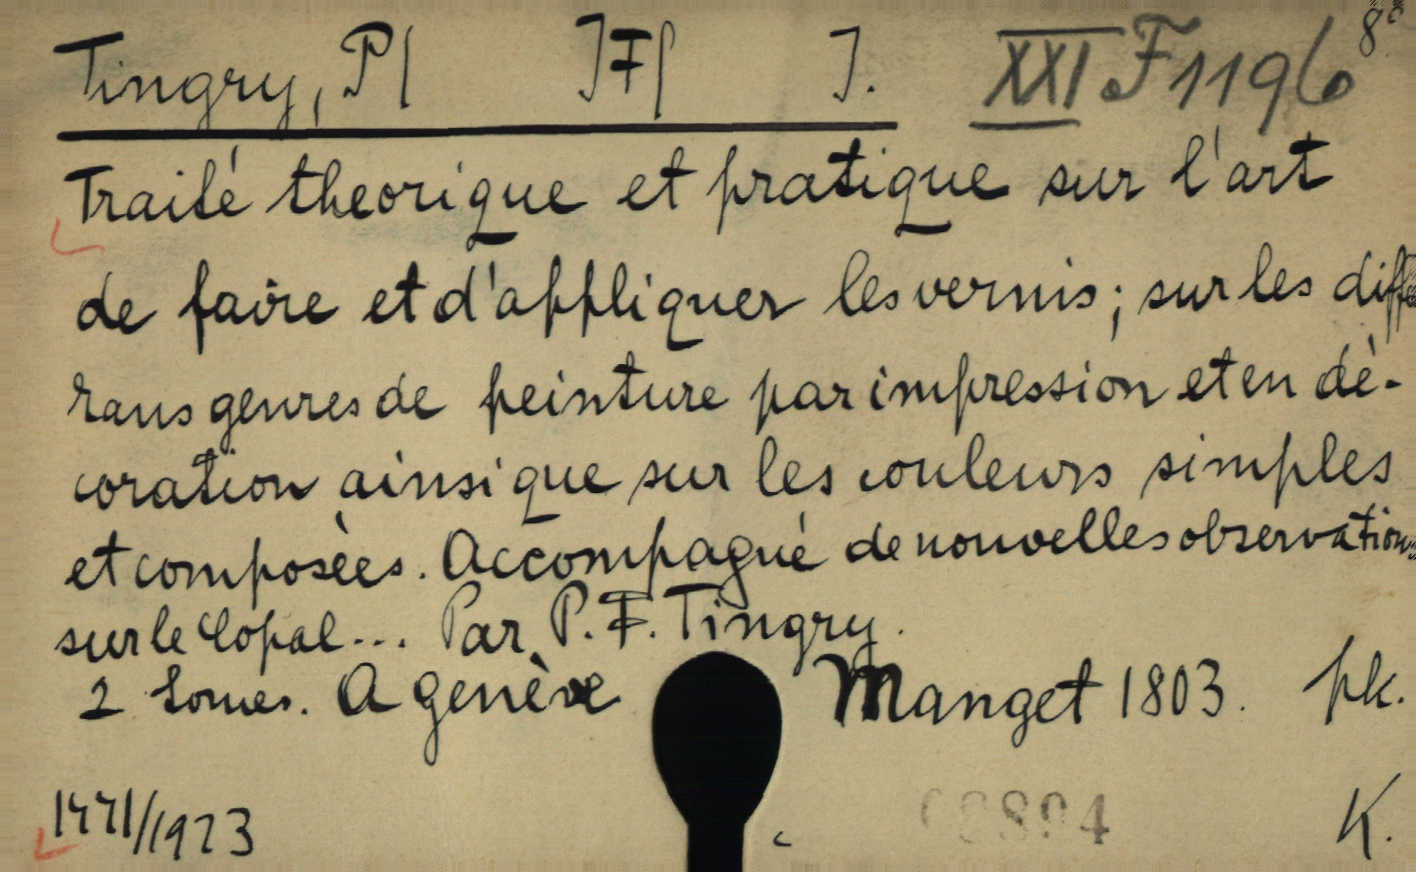 Tingry, P| ]F| J. XXI F 1196 8°
Traité theorique et pratique sur l'art
de faire et d'appliquer les vernis; sur les diffé
rans genres de peinture par impression et en dé-
coration ainsi que sur les couleurs simples
et composées. Accompagné de nouvelles observations
sur le Copal... Par P. F. Tingry.
2 tomes. A genève Manget 1803. pk.
1923 K.